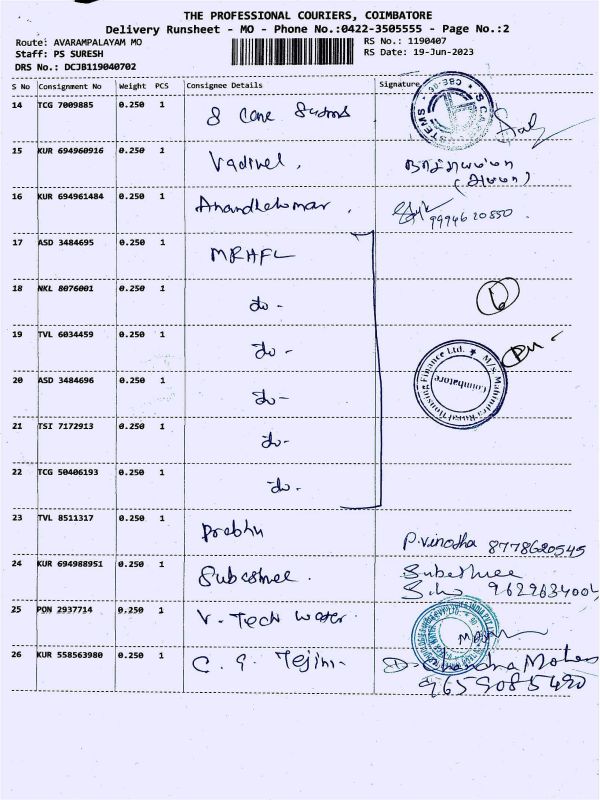 THE PROFESSIONAL COURIERS, COIMBATORE
Delivery Runsheet - MO - Phone No.:0422-3505555 - Page No.:2
Route: AVARAMPALAYAM MO
RS No.: 1190407
Staff: PS SURESH
RS Date: 19-Jun-2023
DRS No.: DCJB119040702
S No Consignment No Weight PCS Consignee Details Signature
14 TCG 7009885 0.250 1
15 KUR 694960916 0.250 1 Vadivel.
16 KUR 694961484 0.250 1 9994620550
17 ASD 3484695 0.250 1 MRHFL
18 NKL 8076001 0.250 1 do - 6
19 TVL 6034459 0.250 1 do -
M/s. Mahindra Rural Housing Finance Ltd. Coimbatore
20 ASD 3484696 0.250 1 do -
21 TSI 7172913 0.250 1 do -
22 TCG 50406193 0.250 1 do -
23 TVL 8511317 0.250 1 Prabhu P.vinodha 8778620545
24 KUR 694988951 0.250 1
25 PON 2937714 0.250 1 V-Tech Water
26 KUR 558563980 0.250 1